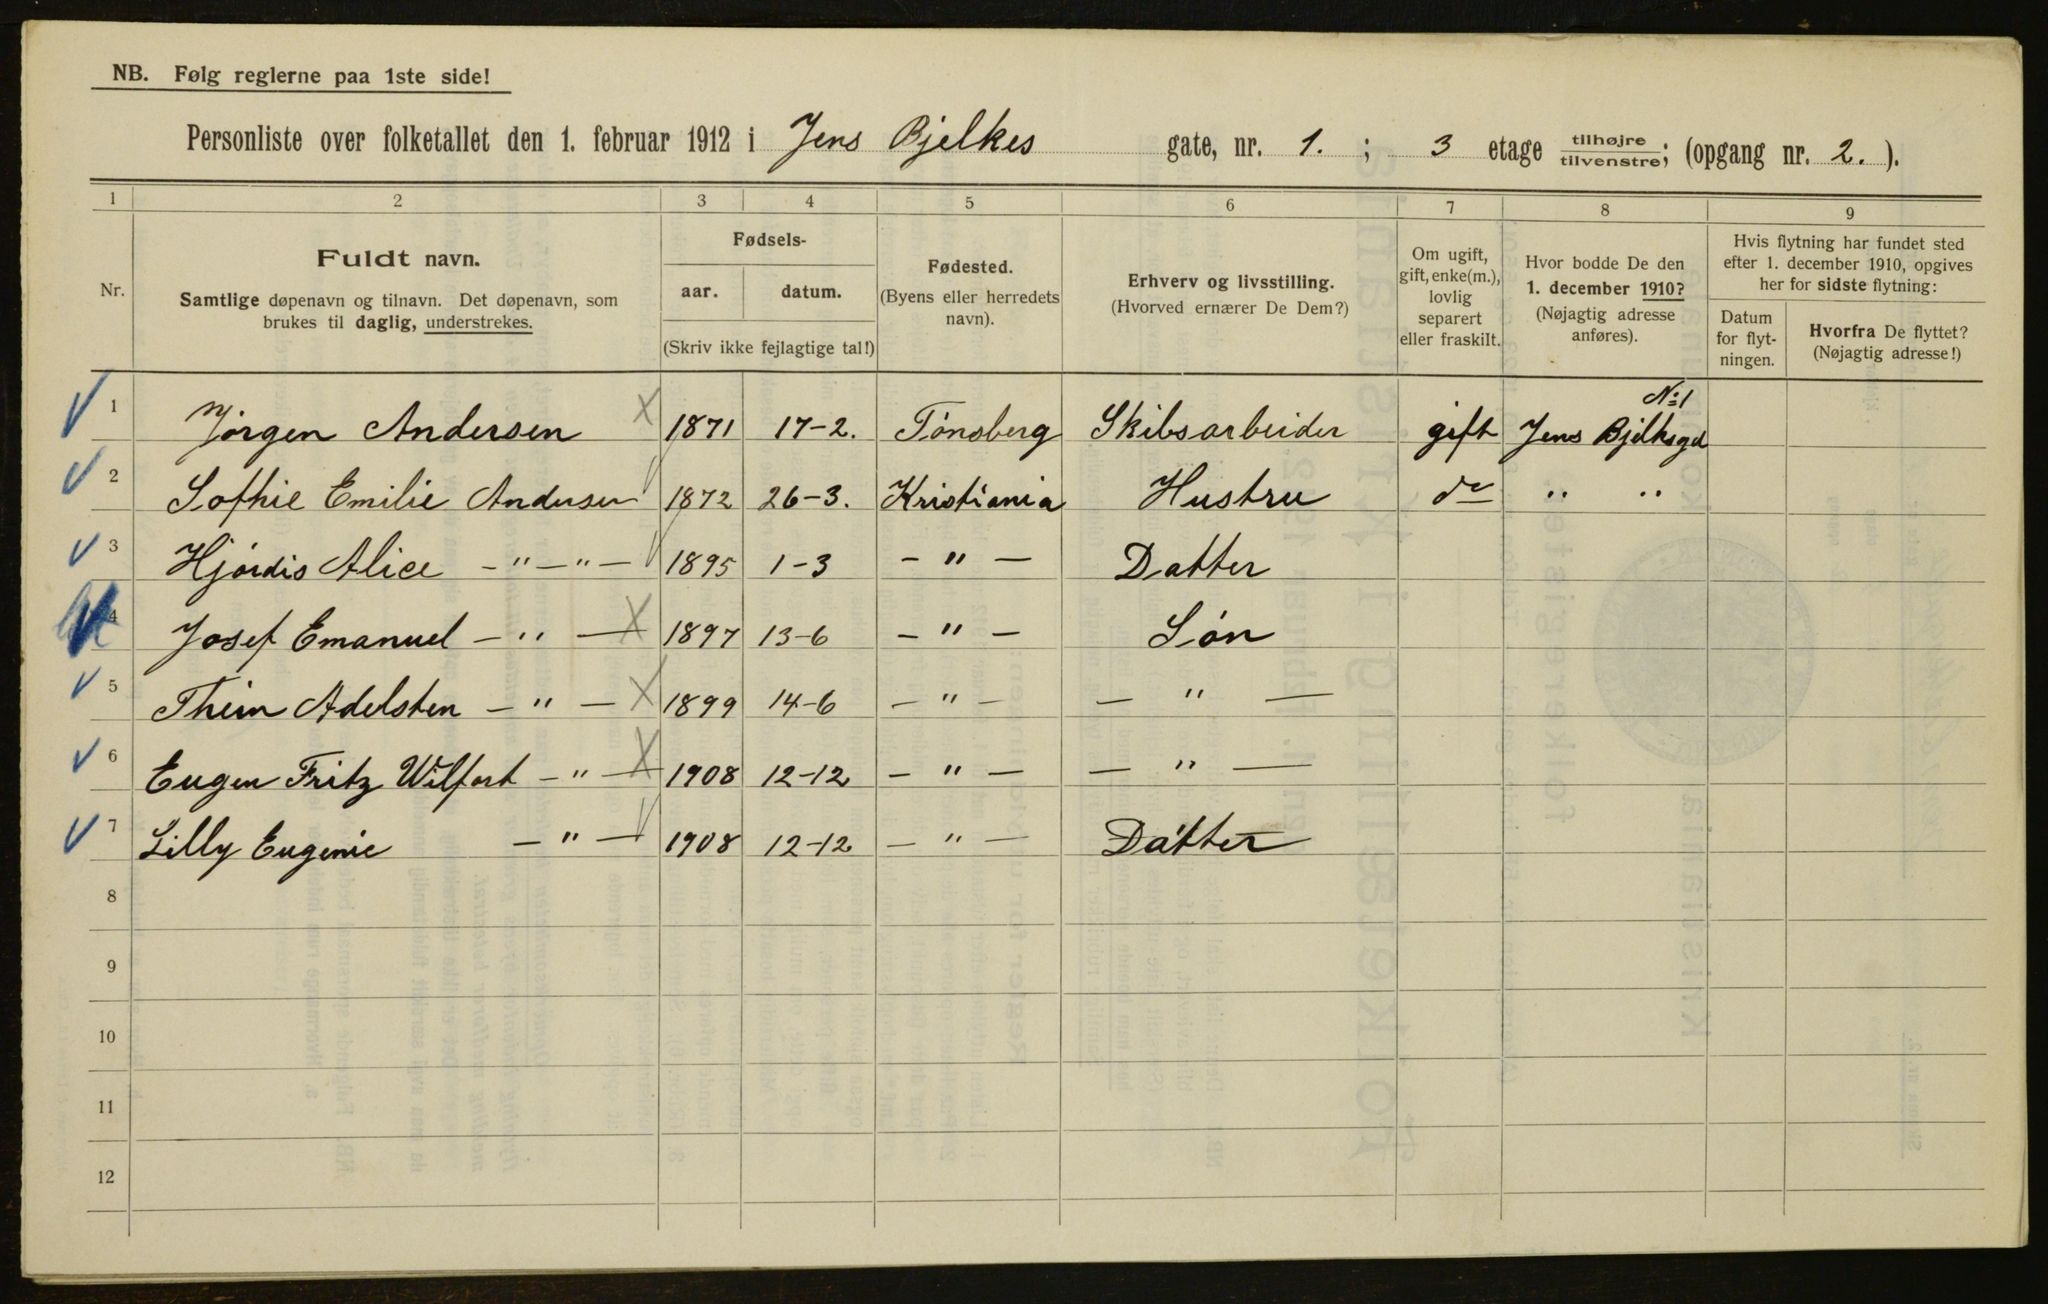 NB. Følg reglerne paa 1ste side!
Personliste over folketallet den 1. februar 1912 i Jens Bjelkes gate, nr. 1. ; 3 etage tilhøjre tilvenstre; (opgang nr. 2. ).
1 2 3 4 5 6 7 8 9
Nr.
Fuldt navn.
Samtlige døpenavn og tilnavn. Det døpenavn, som
brukes til daglig, understrekes.
Fødsels-
aar. datum.
(Skriv ikke fejlagtige tal!)
Fødested.
(Byens eller herredets
navn).
Erhverv og livsstilling.
(Hvorved ernærer De Dem?)
Om ugift,
gift, enke(m.),
lovlig
separert
eller fraskilt.
Hvor bodde De den
1. december 1910?
(Nøjagtig adresse
anføres).
Hvis flytning har fundet sted
efter 1. december 1910, opgives
her for sidste flytning:
Datum
for flyt-
ningen.
Hvorfra De flyttet?
(Nøjagtig adresse!)
1 Jørgen Andersen 1871 17-2. Tønsberg Skibsarbeider gift Jens Bjelksgd No 1
2 Sofhie Emilie Andersen 1872 26-3. Kristiania Hustru do " "
3 Hjørdis Alice - " - " - 1895 1-3 - " - Datter
4 Josef Emanuel - " - 1897 13-6 - " - Søn
5 Adelsten - " - 1899 14-6 - " - - " -
6 Eugen Fritz Wilfort - " - 1908 12-12 - " - - " -
7 Lilly Eugenie - " - 1908 12-12 - " - Datter
8
9
10
11
12